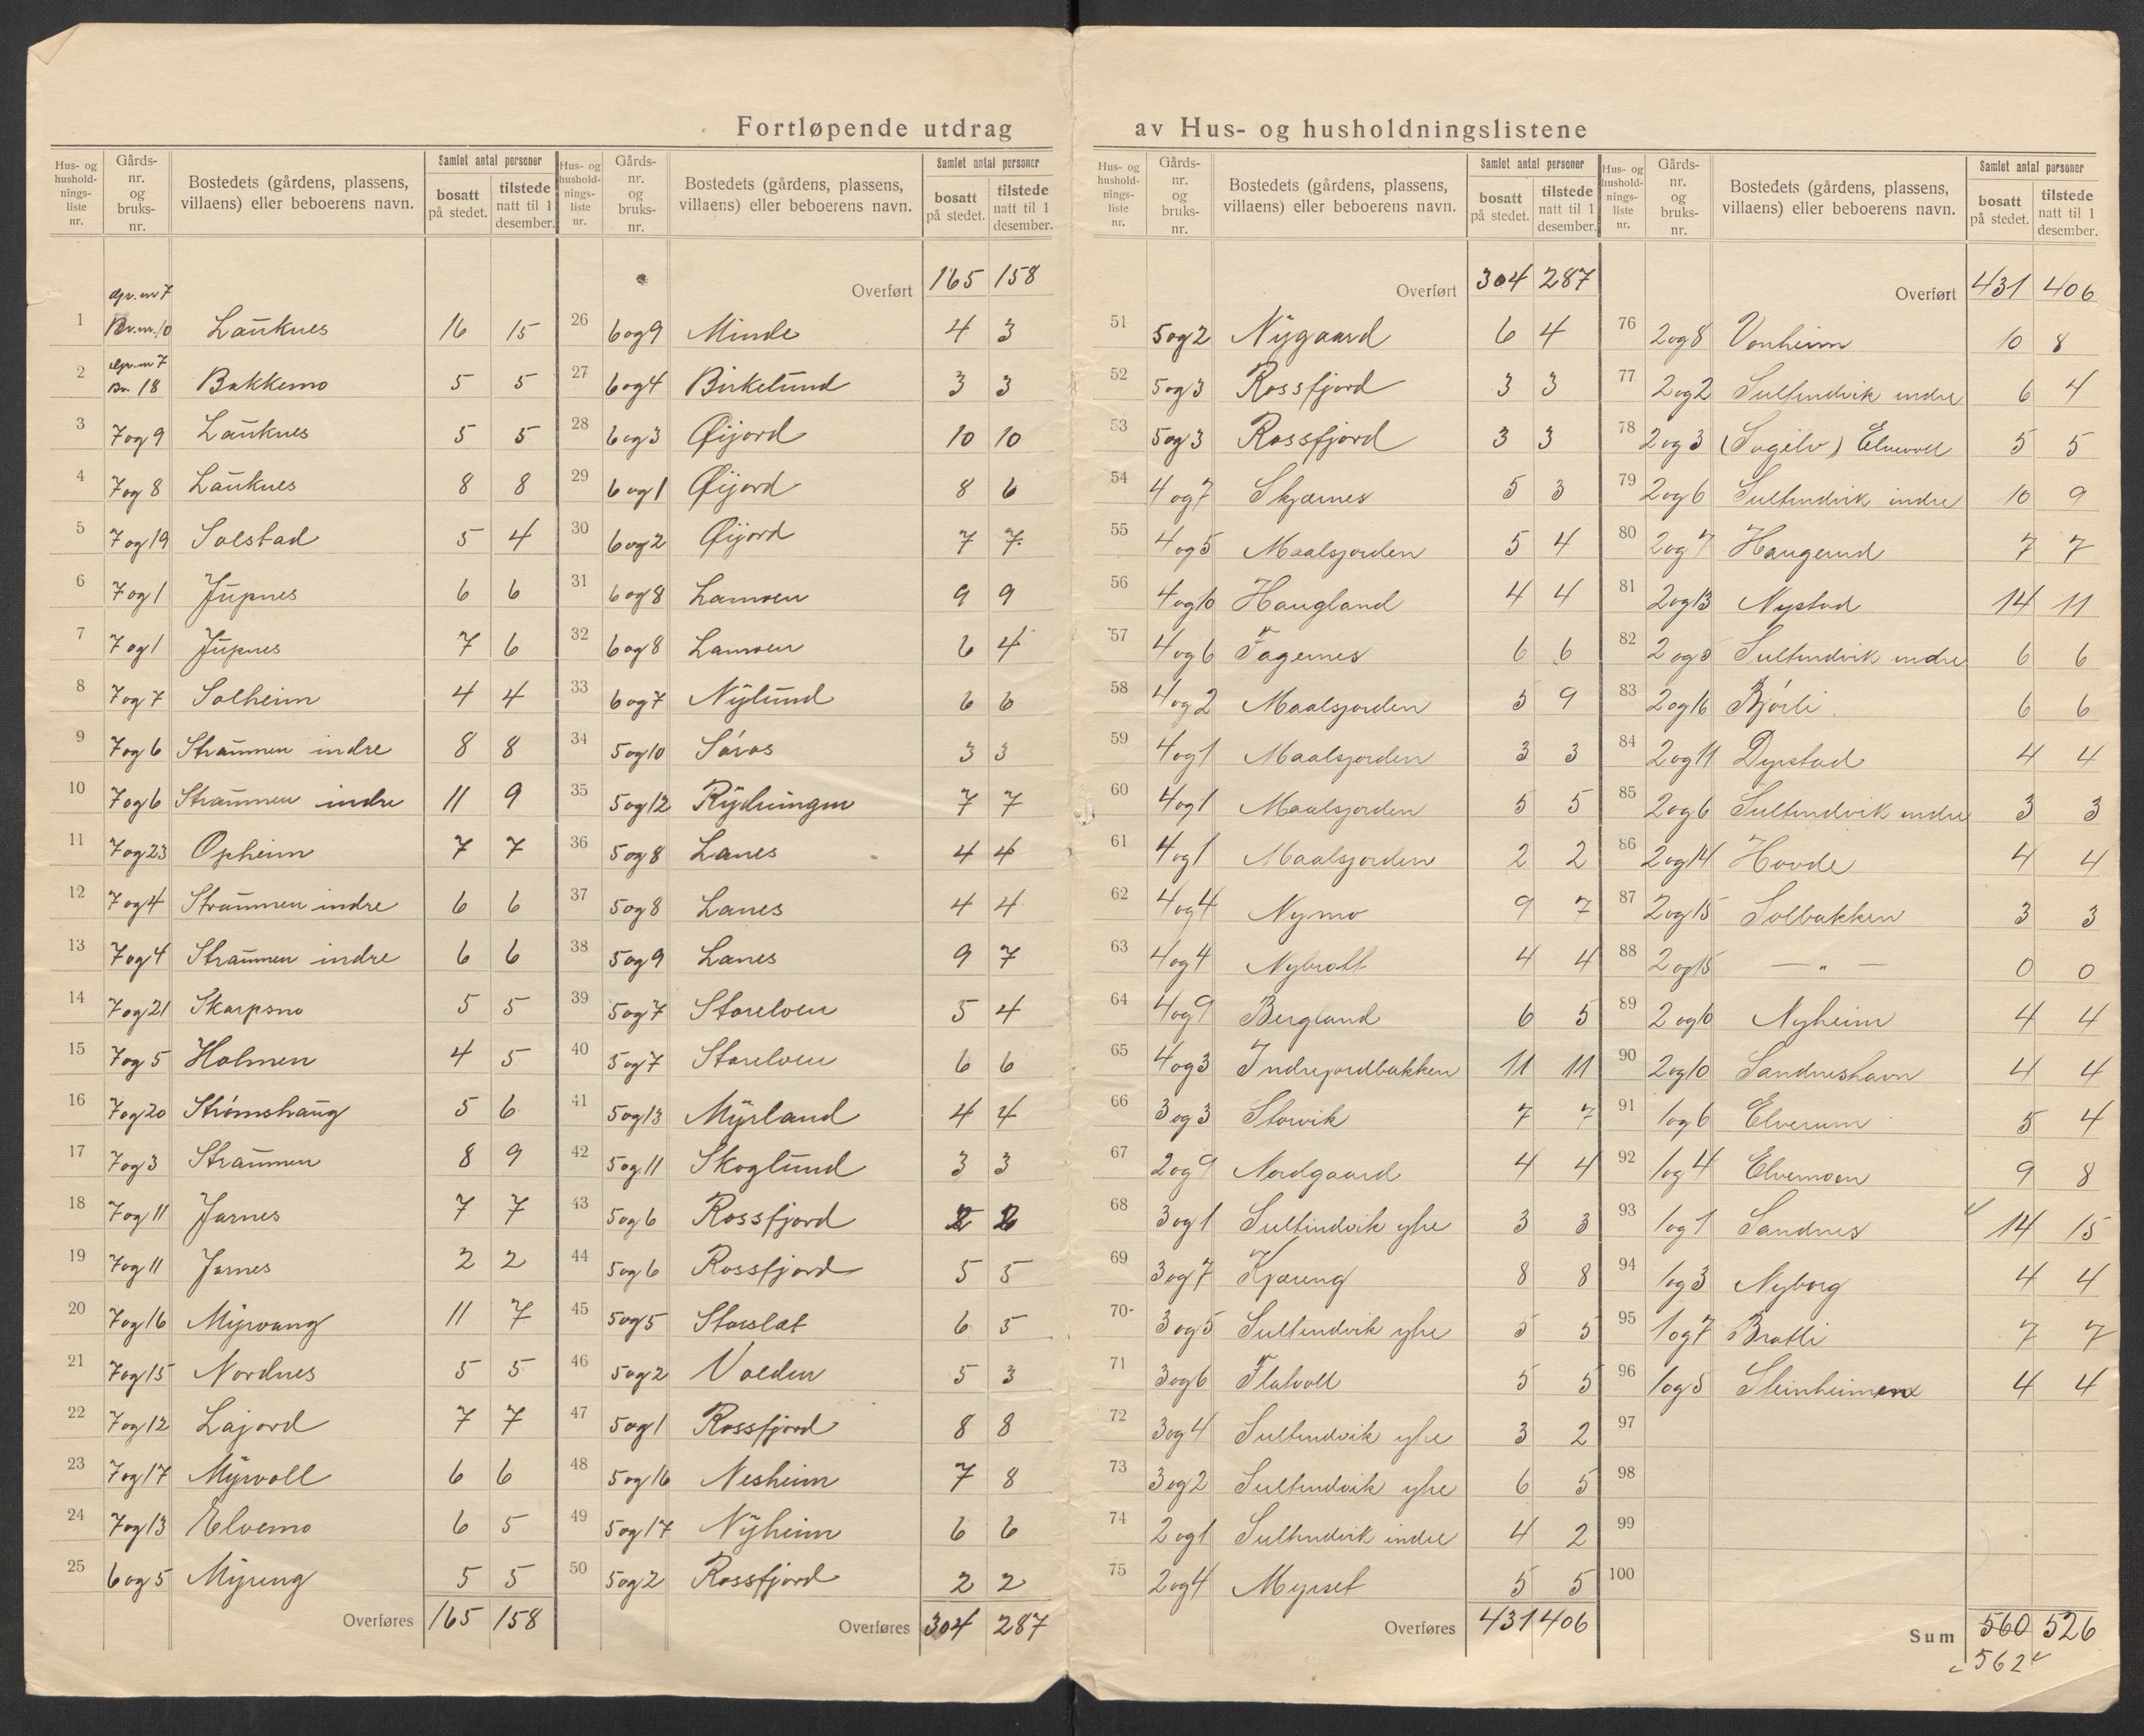 Fortløpende utdrag av Hus- og husholdningslistene
Hus- og hushold-nings-liste nr. Gårds-nr. og bruks-nr. Bostedets (gårdens, plassens, villaens) eller beboerens navn. Samlet antal personer bosatt på stedet. tilstede natt til 1 desember.
1 Gr. nr 7 Br. nr. 10 Lauknes 16 15
2 Gr. nr 7 Br. 18 Bakkemo 5 5
3 7 og 9 Lauknes 5 5
4 7 og 8 Lauknes 8 8
5 7 og 19 Solstad 5 4
6 7 og 1 Jupnes 6 6
7 7 og 1 Jupnes 7 6
8 7 og 7 Solheim 4 4
9 7 og 6 Straumen indre 8 8
10 7 og 6 Straumen indre 11 9
11 7 og 23 Opheim 7 7
12 7 og 4 Straumen indre 6 6
13 7 og 4 Straumen indre 6 6
14 7 og 21 Skarpsno 5 5
15 7 og 5 Holmen 4 5
16 7 og 20 Strömshaug 5 6
17 7 og 3 Straumen 8 9
18 7 og 11 Jarnes 7 7
19 7 og 11 Jarnes 2 2
20 7 og 16 Myrvang 11 7
21 7 og 15 Nordnes 5 5
22 7 og 12 Lajord 7 7
23 7 og 17 Myrvoll 6 6
24 7 og 13 Elvemo 6 5
25 6 og 5 Myreng 5 5
Overføres 165 158
Hus- og hushold-nings-liste nr. Gårds-nr. og bruks-nr. Bostedets (gårdens, plassens, villaens) eller beboerens navn. Samlet antal personer bosatt på stedet. tilstede natt til 1 desember.
Overført 165 158
26 6 og 9 Minde 4 3
27 6 og 4 Birkelund 3 3
28 6 og 3 Øijord 10 10
29 6 og 1 Øijord 8 6
30 6 og 2 Øijord 7 7
31 6 og 8 Lamoen 9 9
32 6 og 8 Lamoen 6 4
33 6 og 7 Nylund 6 6
34 5 og 10 Söras 3 3
35 5 og 12 Rydningen 7 7
36 5 og 8 Lanes 4 4
37 5 og 8 Lanes 4 4
38 5 og 9 Lanes 9 7
39 5 og 7 Storelven 5 4
40 5 og 7 Storelven 6 6
41 5 og 13 Myrland 4 4
42 5 og 11 Skoglund 3 3
43 5 og 6 Rossfjord 2 2
44 5 og 6 Rossfjord 5 5
45 5 og 5 Storslet 6 5
46 5 og 2 Volden 5 3
47 5 og 1 Rossfjord 8 8
48 5 og 16 Nesheim 7 8
49 5 og 17 Nyheim 6 6
50 5 og 2 Rossfjord 2 2
Overføres 304 287
Hus- og hushold-nings-liste nr. Gårds-nr. og bruks-nr. Bostedets (gårdens, plassens, villaens) eller beboerens navn. Samlet antal personer bosatt på stedet. tilstede natt til 1 desember.
Overført 304 287
51 5 og 2 Nygaard 6 4
52 5 og 3 Rossfjord 3 3
53 5 og 3 Rossfjord 3 3
54 4 og 7 Skjærnes 5 3
55 4 og 5 Maalsjorden 5 4
56 4 og 10 Haugland 4 4
57 4 og 6 Fagernes 6 6
58 4 og 2 Maalsjorden 5 9
59 4 og 1 Maalsjorden 3 3
60 4 og 1 Maalsjorden 5 5
61 4 og 1 Maalsjorden 2 2
62 4 og 4 Nymo 9 7
63 4 og 4 Nybrott 4 4
64 4 og 9 Bergland 6 5
65 4 og 3 Indrejordbakken 11 11
66 3 og 3 Storvik 7 7
67 2 og 9 Nordgaard 4 4
68 3 og 1 Sultindvik ytre 3 3
69 3 og 7 Kjæreng 8 8
70 3 og 5 Sultindvik ytre 5 5
71 3 og 6 Flatvoll 5 5
72 3 og 4 Sultindvik ytre 3 2
73 3 og 2 Sultindvik ytre 6 5
74 2 og 1 Sultindvik indre 4 2
75 2 og 4 Myrset 5 5
Overføres 431 406
Hus- og hushold-nings-liste nr. Gårds-nr. og bruks-nr. Bostedets (gårdens, plassens, villaens) eller beboerens navn. Samlet antal personer bosatt på stedet. tilstede natt til 1 desember.
Overført 431 406
76 2 og 8 Vonheim 10 8
77 2 og 2 Sultindvik indre 6 4
78 2 og 3 (Sagelv) Elvevoll 5 5
79 2 og 6 Sultindvik indre 10 9
80 2 og 7 Haugerud 7 7
81 2 og 13 Nystad 14 11
82 2 og 5 Sultindvik indre 6 6
83 2 og 16 Bjørli 6 6
84 2 og 11 Dyrstad 4 4
85 2 og 6 Sultindvik indre 3 3
86 2 og 14 Hovde 4 4
87 2 og 15 Solbakken 3 3
88 2 og 15 — " — 0 0
89 2 og 10 Nyheim 4 4
90 2 og 10 Sandneshavn 4 4
91 1 og 6 Elverum 5 4
92 1 og 4 Elvemoen 9 8
93 1 og 1 Sandnes 14 15
94 1 og 3 Nyborg 4 4
95 1 og 7 Bratli 7 7
96 1 og 5 Steinheimen 4 4
97
98
99
100
Sum 560 526
562